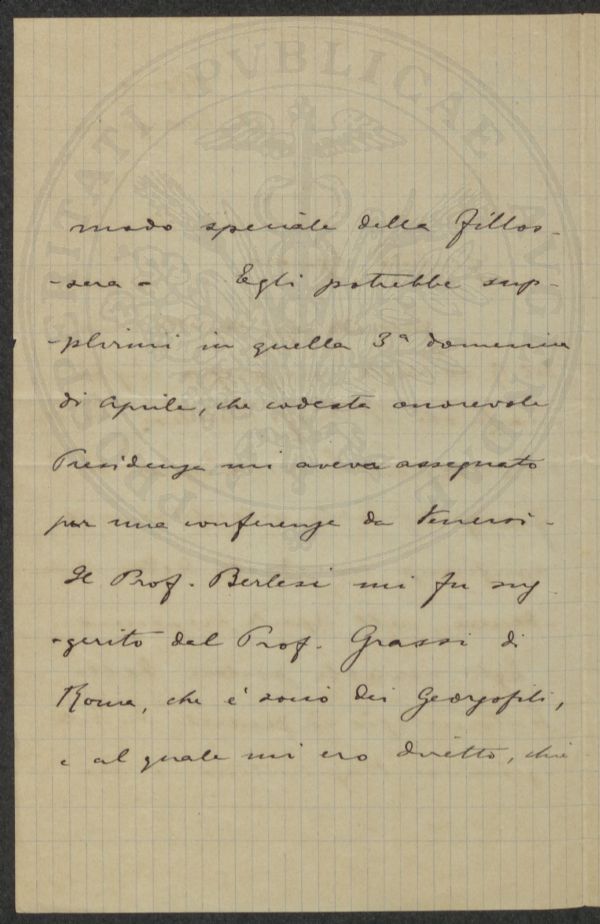 modo speciale della fillos-
-sera - Egli potrebbe sup-
-plirmi in quella 3ª domenica
di Aprile, che codesta onorevole
Presidenza mi aveva assegnato
per una conferenza da tenersi -
Il Prof. Berlesi mi fu sug
-gerito dal Prof. Grassi di
Roma, che è socio dei Georgofili,
e al quale mi ero diretto, che
PROSPERITATI PVBLICAE AVGENDAE